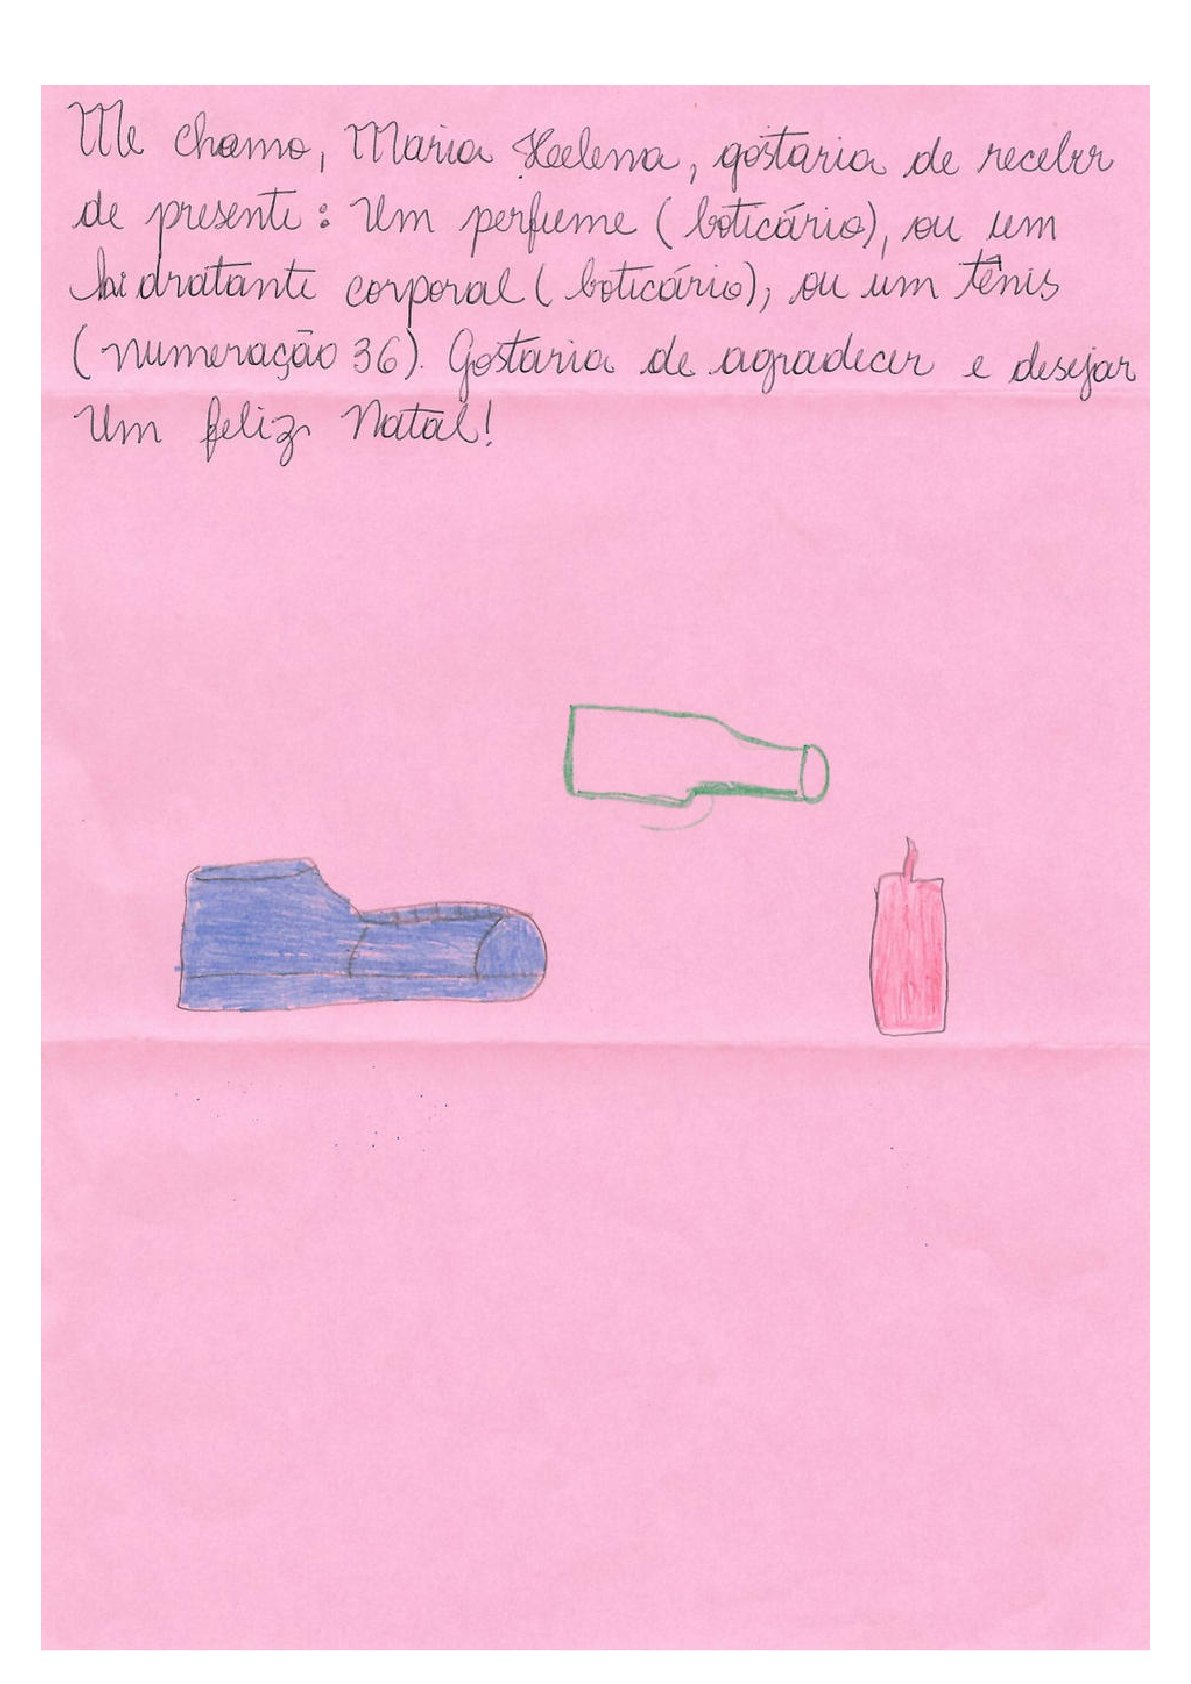 Me chamo, Maria Helena, gostaria de receber
de presente: Um perfume (boticário), ou um
hidratante corporal (boticário), ou um tênis
(numeração 36). Gostaria de agradecer e desejar
Um feliz Natal!